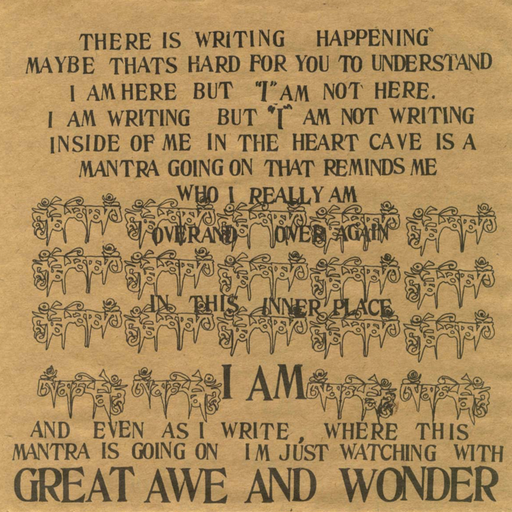 THERE IS WRITING HAPPENING
MAYBE THATS HARD FOR YOU TO UNDERSTAND
I AM HERE BUT "I" AM NOT HERE.
I AM WRITING BUT "I" AM NOT WRITING
INSIDE OF ME IN THE HEART CAVE IS A
MANTRA GOING ON THAT REMINDS ME
WHO I REALLY AM
OVER AND OVER AGAIN
IN THIS INNER PLACE
I AM
AND EVEN AS I WRITE, WHERE THIS
MANTRA IS GOING ON I M JUST WATCHING WITH
GREAT AWE AND WONDER